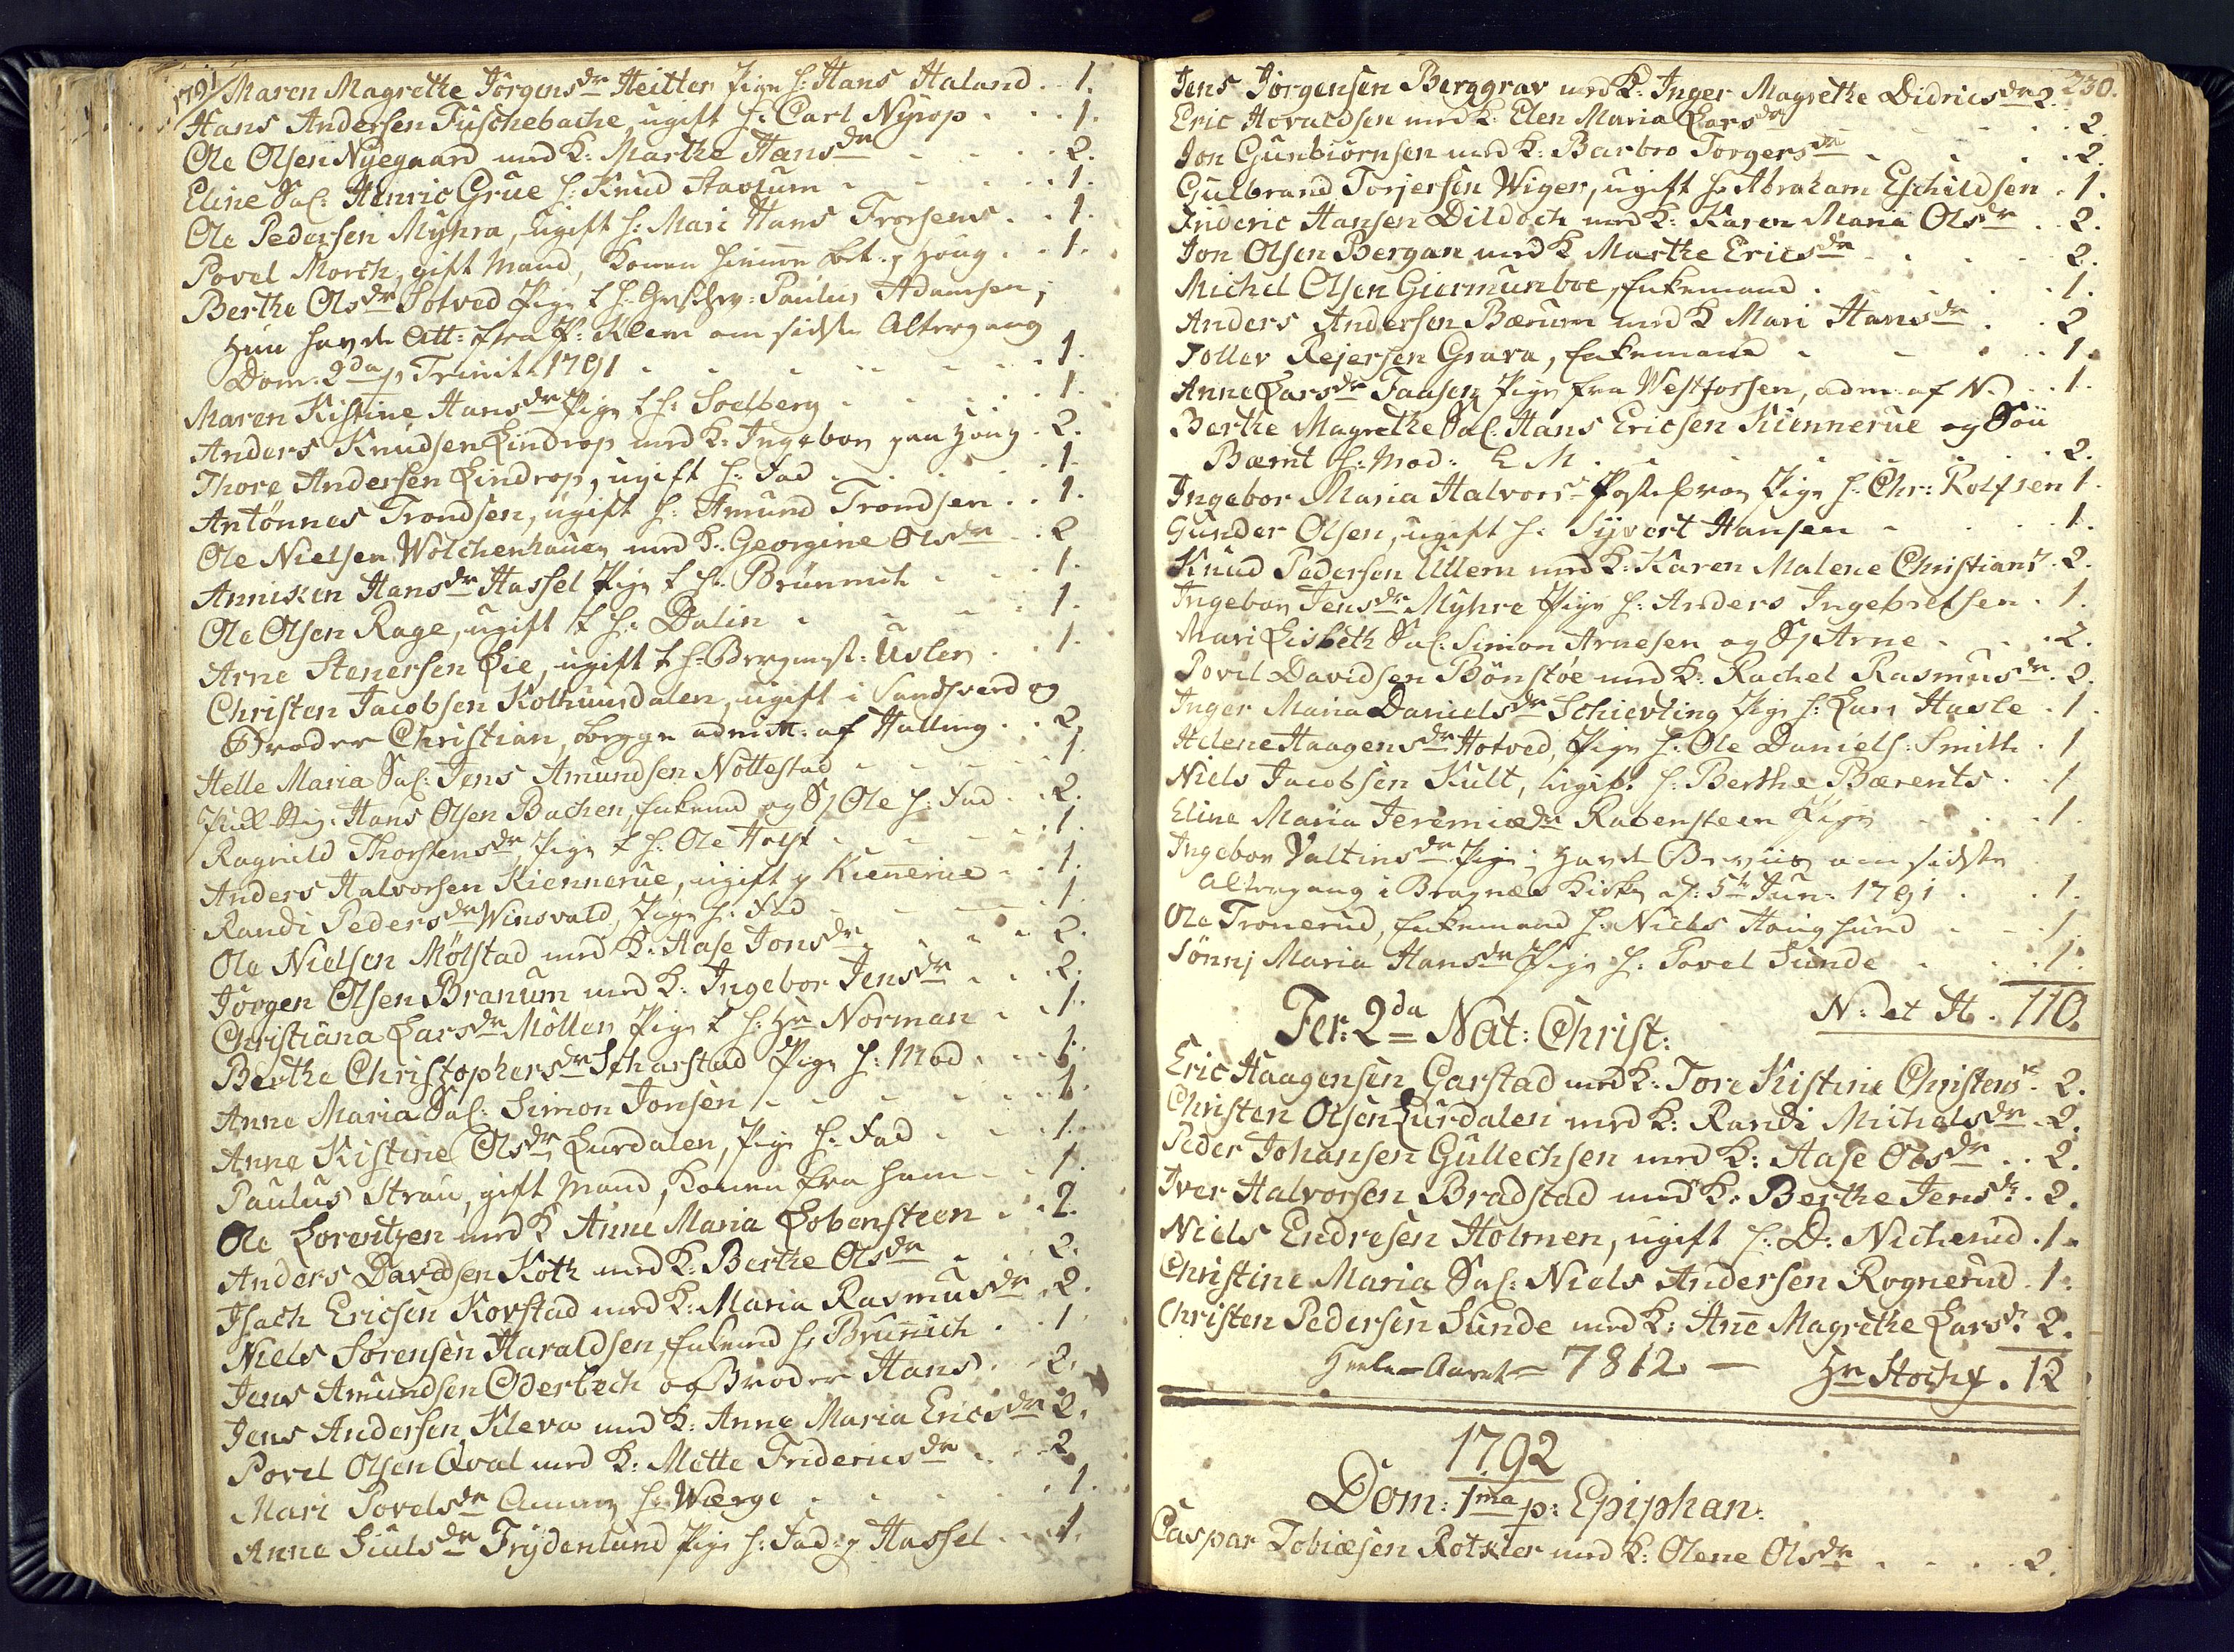 1791
Maren Magrethe Jörgensdr Heitler Pige h: Hans Haland . 1.
Hans Andersen Fuschebache ugift h: Carl Nyrop . . . 1.
Ole Olsen Nyegaard med K: Marthe Hansdr . . . 2.
Eline Sal: Henric Grue h: Knud Stavlum . . . 1.
Ole Pedersen Myhra, ugift h: Mari Hans Tronsens . . 1.
Povel Morch, gift Mand, Konen hiemme . . 1.
Berthe Olsdr Solved Pige t h: Paulus Adamsen,
hun havde Att: fra P: Klem om sidste Altergang
Dom: 2da p Trinit. 1791 . . . . 1.
Maren Kistine Hansdr Pige t h: Soelberg . . . 1.
Anders Knudsen Lindrop med K: Ingebor paa Houg . 2.
Thore Andersen Lindrop, ugift h: Fad . . . 1.
Antönnes Trondsen, ugift h: Amund Trondsen . . 1.
Ole Nielsen Wolchenhauer med K: Georgine Olsdr . . 2
Anniken Hansdr Hassel Pige t h: Brünnich . . . 1.
Ole Olsen Rage, ugift t h: Dalin . . . 1.
Arne Stenersen Lie, ugift t h: Bergmest: Üslers . . 1.
Christen Jacobsen Kolkinsdalen, ugift i Sandsverd og
Broder Christian, begge admitt: af Halling . . 2.
Helle Maria Sal: Jens Amundsen Nottestad . . . 1.
Hans Olsen Bachen, Enkemd og S/ Ole h: Fad . . 2.
Ragnild Thorstensdr Pige t h: Ole Holst . . . 1.
Anders Halvorsen Kiennerue, ugift p Kiennerue . . 1.
Randi Pedersdr Winsvald, Pige h: Fad . . . 1.
Ole Nielsen Mølstad med K: Aase Jonsdr . . . 2.
Jörgen Olsen Branum med K: Ingebor Jensdr . . . 2.
Christiana Larsdr Möller Pige t h: Hr Norman . . 1.
Berthe Christophersdr Scharstad Pige h: Mod . . . 1.
Anne Maria Sal: Simon Jonsen . . . 1.
Anne Kistine Olsdr Lurdalen, Pige h: Fad . . . 1.
Paulus Strau, gift Mand, Konen fra ham . . 1.
Ole Lorentzen med K Anne Maria Lobensteen . . 2.
Anders Davidsen Koth med K: Berthe Olsdr . . . 2.
Isach Ericsen Korstad med K: Maria Rasmusdr . 2.
Niels Sörensen Haraldsen, Enkemd h: Brünnich . . 1
Jens Amundsen Oderbech og Broder Hans . . 2.
Jens Andersen Kleva med K: Anne Maria Ericsdr 2.
Povel Olsen Qval med K: Mette Fridericsdr . . 2
Mari Povelsdr h: Wærge . . . 1.
Anne Siulsdr Frydenlund Pige h: Fad: p Hassel . . 1.
230.
Jens Jörgensen Berggrav med K: Inger Magrethe Didricsdr 2.
Eric Horvaldsen med K: Elen Maria Larsdr . . . 2.
Jon Gunbiörnsen med K: Barbro Torgersdr . . . 2.
Gulbrand Torjersen Wiger, ugift h: Abraham Eschildsen . 1.
Frideric Hansen Dildoch med K: Karen Maria Olsdr . . 2.
Jon Olsen Bergan med K Marthe Ericsdr . . . 2.
Michel Olsen Giermunboe, Enkemand . . . 1.
Anders Andersen Bærum med K Mari Hansdr . . 2
Tollev Rejersen Grava, Enkemand . . . 1.
Anne Larsdr Faasen Pige fra Westfossen, adm: af N. . . 1.
Berthe Magrethe Sal: Hans Ericsen Kiennerue og Søn
Bærnt h: Mod: E M . . . 2.
Ingebor Maria Halvorsdr Pige h: Chr: Rolfsen 1.
Gunder Olsen, ugift h: Syvert Hansen . . . 1.
Knud Pedersen Ullern med K: Karen Malene Christians . 2.
Ingebor Jensdr Myhre Pige h: Anders Ingebretsen . 1.
Mari Lisbeth Sal: Simon Arnesen og S/ Arne . . 2.
Povel Davidsen Bönstöe med K: Rachel Rasmusdr . 2.
Inger Maria Danielsdr Schierling Pige h: Lars Hasle . 1.
Helene Haagensdr Hotved, Pige h: Ole Daniels: Smith . 1
Niels Jacobsen Kult, ugift h: Berthe Bærents . . 1
Eline Maria Jeremiædr Rabensteen Pige . . . 1.
Ingebor Valtinsdr Pige; havde Beviis om sidste
Altergang i Bragnæs Kirke d: 5te Jun: 1791 . . . 1.
Ole Tronerud, Enkemand h: Niels Haughund . . 1.
Sönnj Maria Hansdr Pige h: Povel Sunde . . . 1.
N: et H. . 110.
Fer: 2da Nat: Christ:
Eric Haagensen Garstad med K: Tore Kistine Christensdr . 2.
Christen Olsen Lurdalen med K: Randi Michelsdr . 2.
Peder Johansen Gullechsen med K: Aase Olsdr . . 2.
Iver Halvorsen Bradstad med K: Berthe Jensdr . 2.
Niels Endresen Holmen, ugift h: D: Nicherud . 1.
Christine Maria Sal: Niels Andersen Rognerud . 1.
Christen Pedersen Sunde med K: Ane Magrethe Larsdr . 2.
Heele Aaret = 7812 — Hr Hochf . 12
1792
Dom: 1ma p: Epiphan:
Caspar Tobiæsen Rotkler med K: Olene Olsdr . . . . 2.